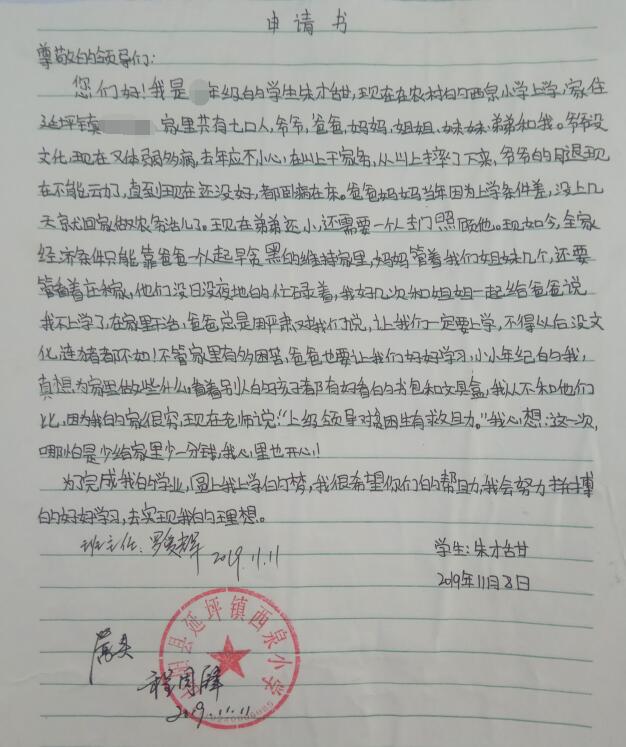 申请书
尊敬的领导们：
您们好！我是 年级的学生朱才甜，现在在农村的西泉小学上学，家住
延坪镇 家里共有七口人，爷爷，爸爸，妈妈，姐姐，妹妹，弟弟和我。爷爷没
文化，现在又体弱多病，去年应不小心，在山上干家务，从山上摔了下来，爷爷的腿现
在不能云动了，直到现在还没好，都卧病在床。爸爸妈妈当年因为上学条件差，没上几
天就回家做农务活儿了。现在弟弟还小，还需要一个人专门照顾他。现如今，全家
经济条件只能靠爸爸一个人起早贪黑的维持家里，妈妈管着我们姐妹几个，还要
管着庄稼，他们没日没夜地的忙碌着，我好几次和姐姐一起给爸爸说
我不上学了，在家里干活，爸爸总是用严肃对我们说，让我们一定要上学，不得以后没文
化，连猪都不如！不管家里有多困苦，爸爸也要让我们好好学习，小小年纪的我，
真想为家里做些什么。看着别人的好孩子都有好看的书包和文具盒，我从不和他们
比，因为我的家很穷，现在老师说：“上级领导对贫困生有救助。”我心想：这一次，
哪怕是少给家里少一分钱，我心里也开心！
为了完成我的学业，圆上我上学的梦，我很希望你们的帮助，我会努力拼搏
的好好学习，去实现我的理想。
班主任：罗 辉 2019.11.11
学生：朱才甜
2019年11月8日
属实
县延坪镇西泉小学
程周锋
2019.11.11